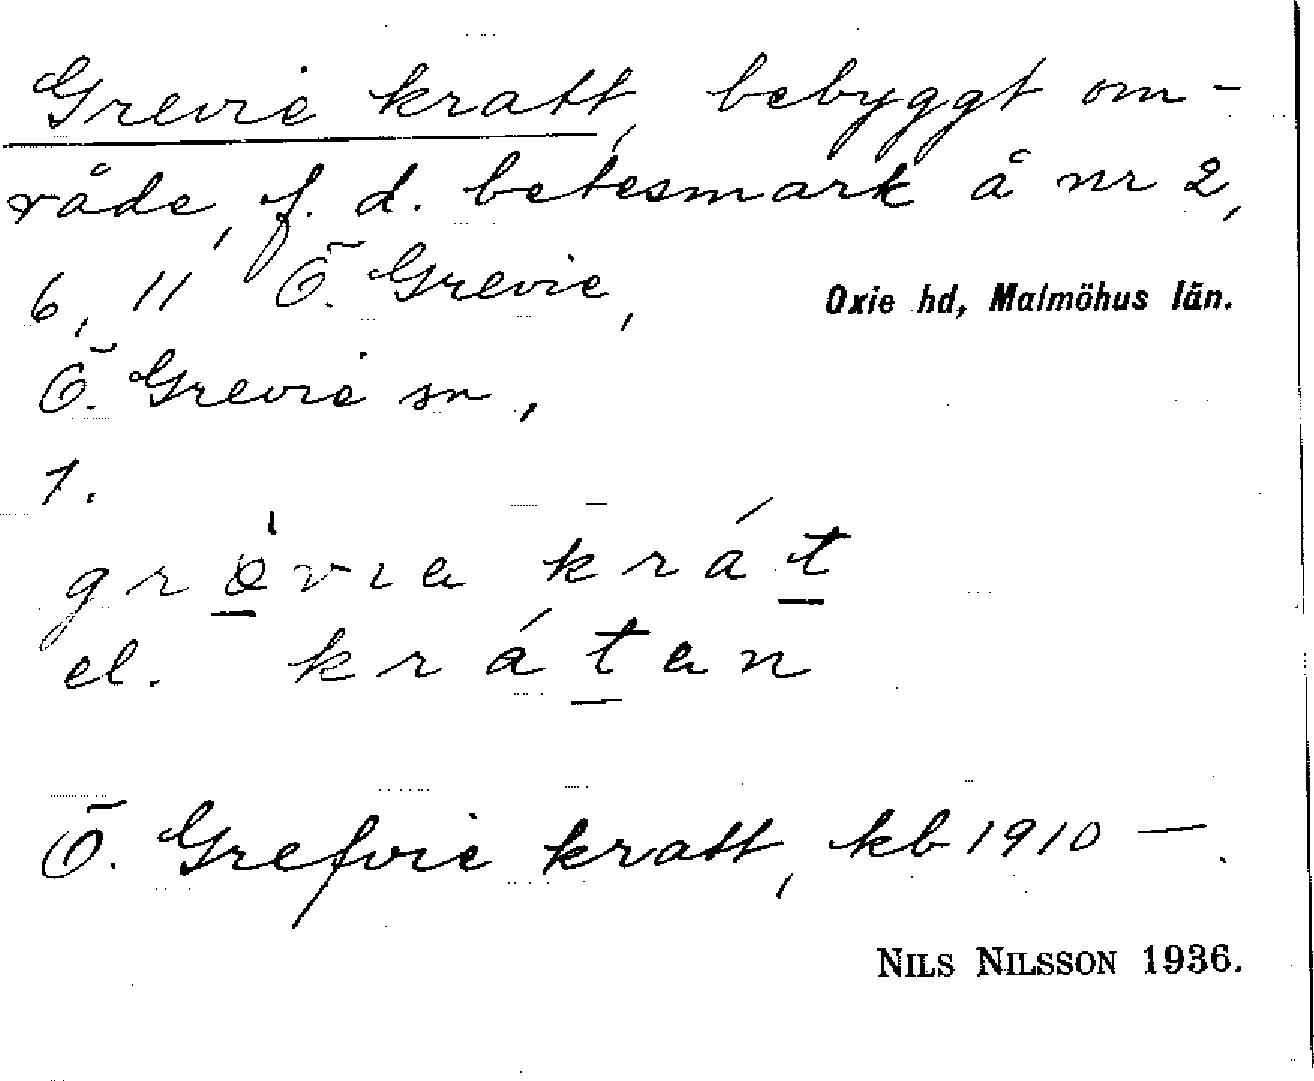 Grevie kratt, bebyggt om-
råde, f. d. betesmark å nr 2,
6, 11 Ö. Grevie,
Oxie hd, Malmöhus län.
Ö. Grevie sn,
1.
grèvıa krát
el. krátan
Ö. Grefvie kratt, kb 1910 —.
NILS NILSSON 1936.